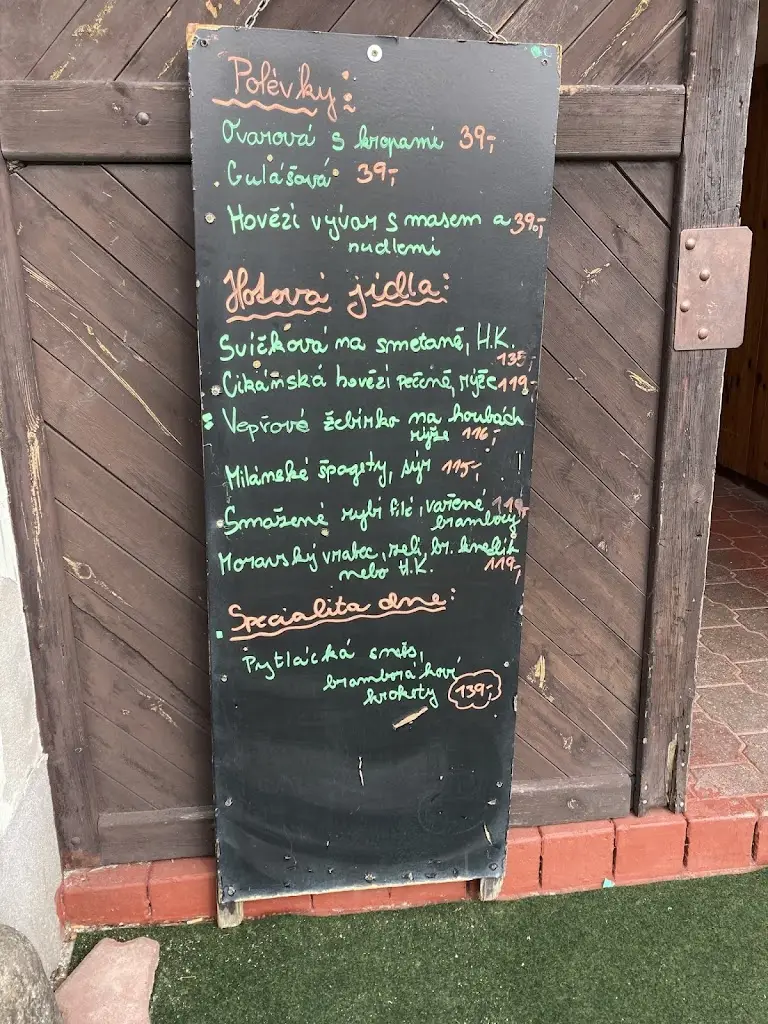 Polévky:
Ovarová s kropami 39,-
Gulášová 39,-
Hovězí vývar s masem a 39,-
nudlemi
Hotová jídla:
Svíčková na smetaně, H.K.
135,-
Cikánská hovězí pečeně, rýže 119,-
Vepřové žebírko na houbách
rýže 116,-
Milánské špagety, sýr 115,-
Smažené rybí filé, vařené 119,-
brambory
Moravský vrabec, zelí, br. knedlík
nebo H.K. 119,-
Specialita dne:
Pytlácká směs,
bramborákové
krokety 139,-